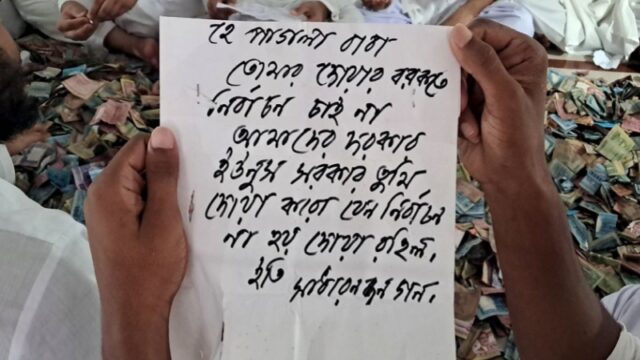 হে পাগলা বাবা
তোমার দোয়ার বরকতে
নির্বাচন চাই না
আমাদের দরকার
ইউনুস সরকার তুমি
দোয়া করো যেন নির্বাচন
না হয় দোয়া রহিল.
ইতি
সাধারন জন গন.